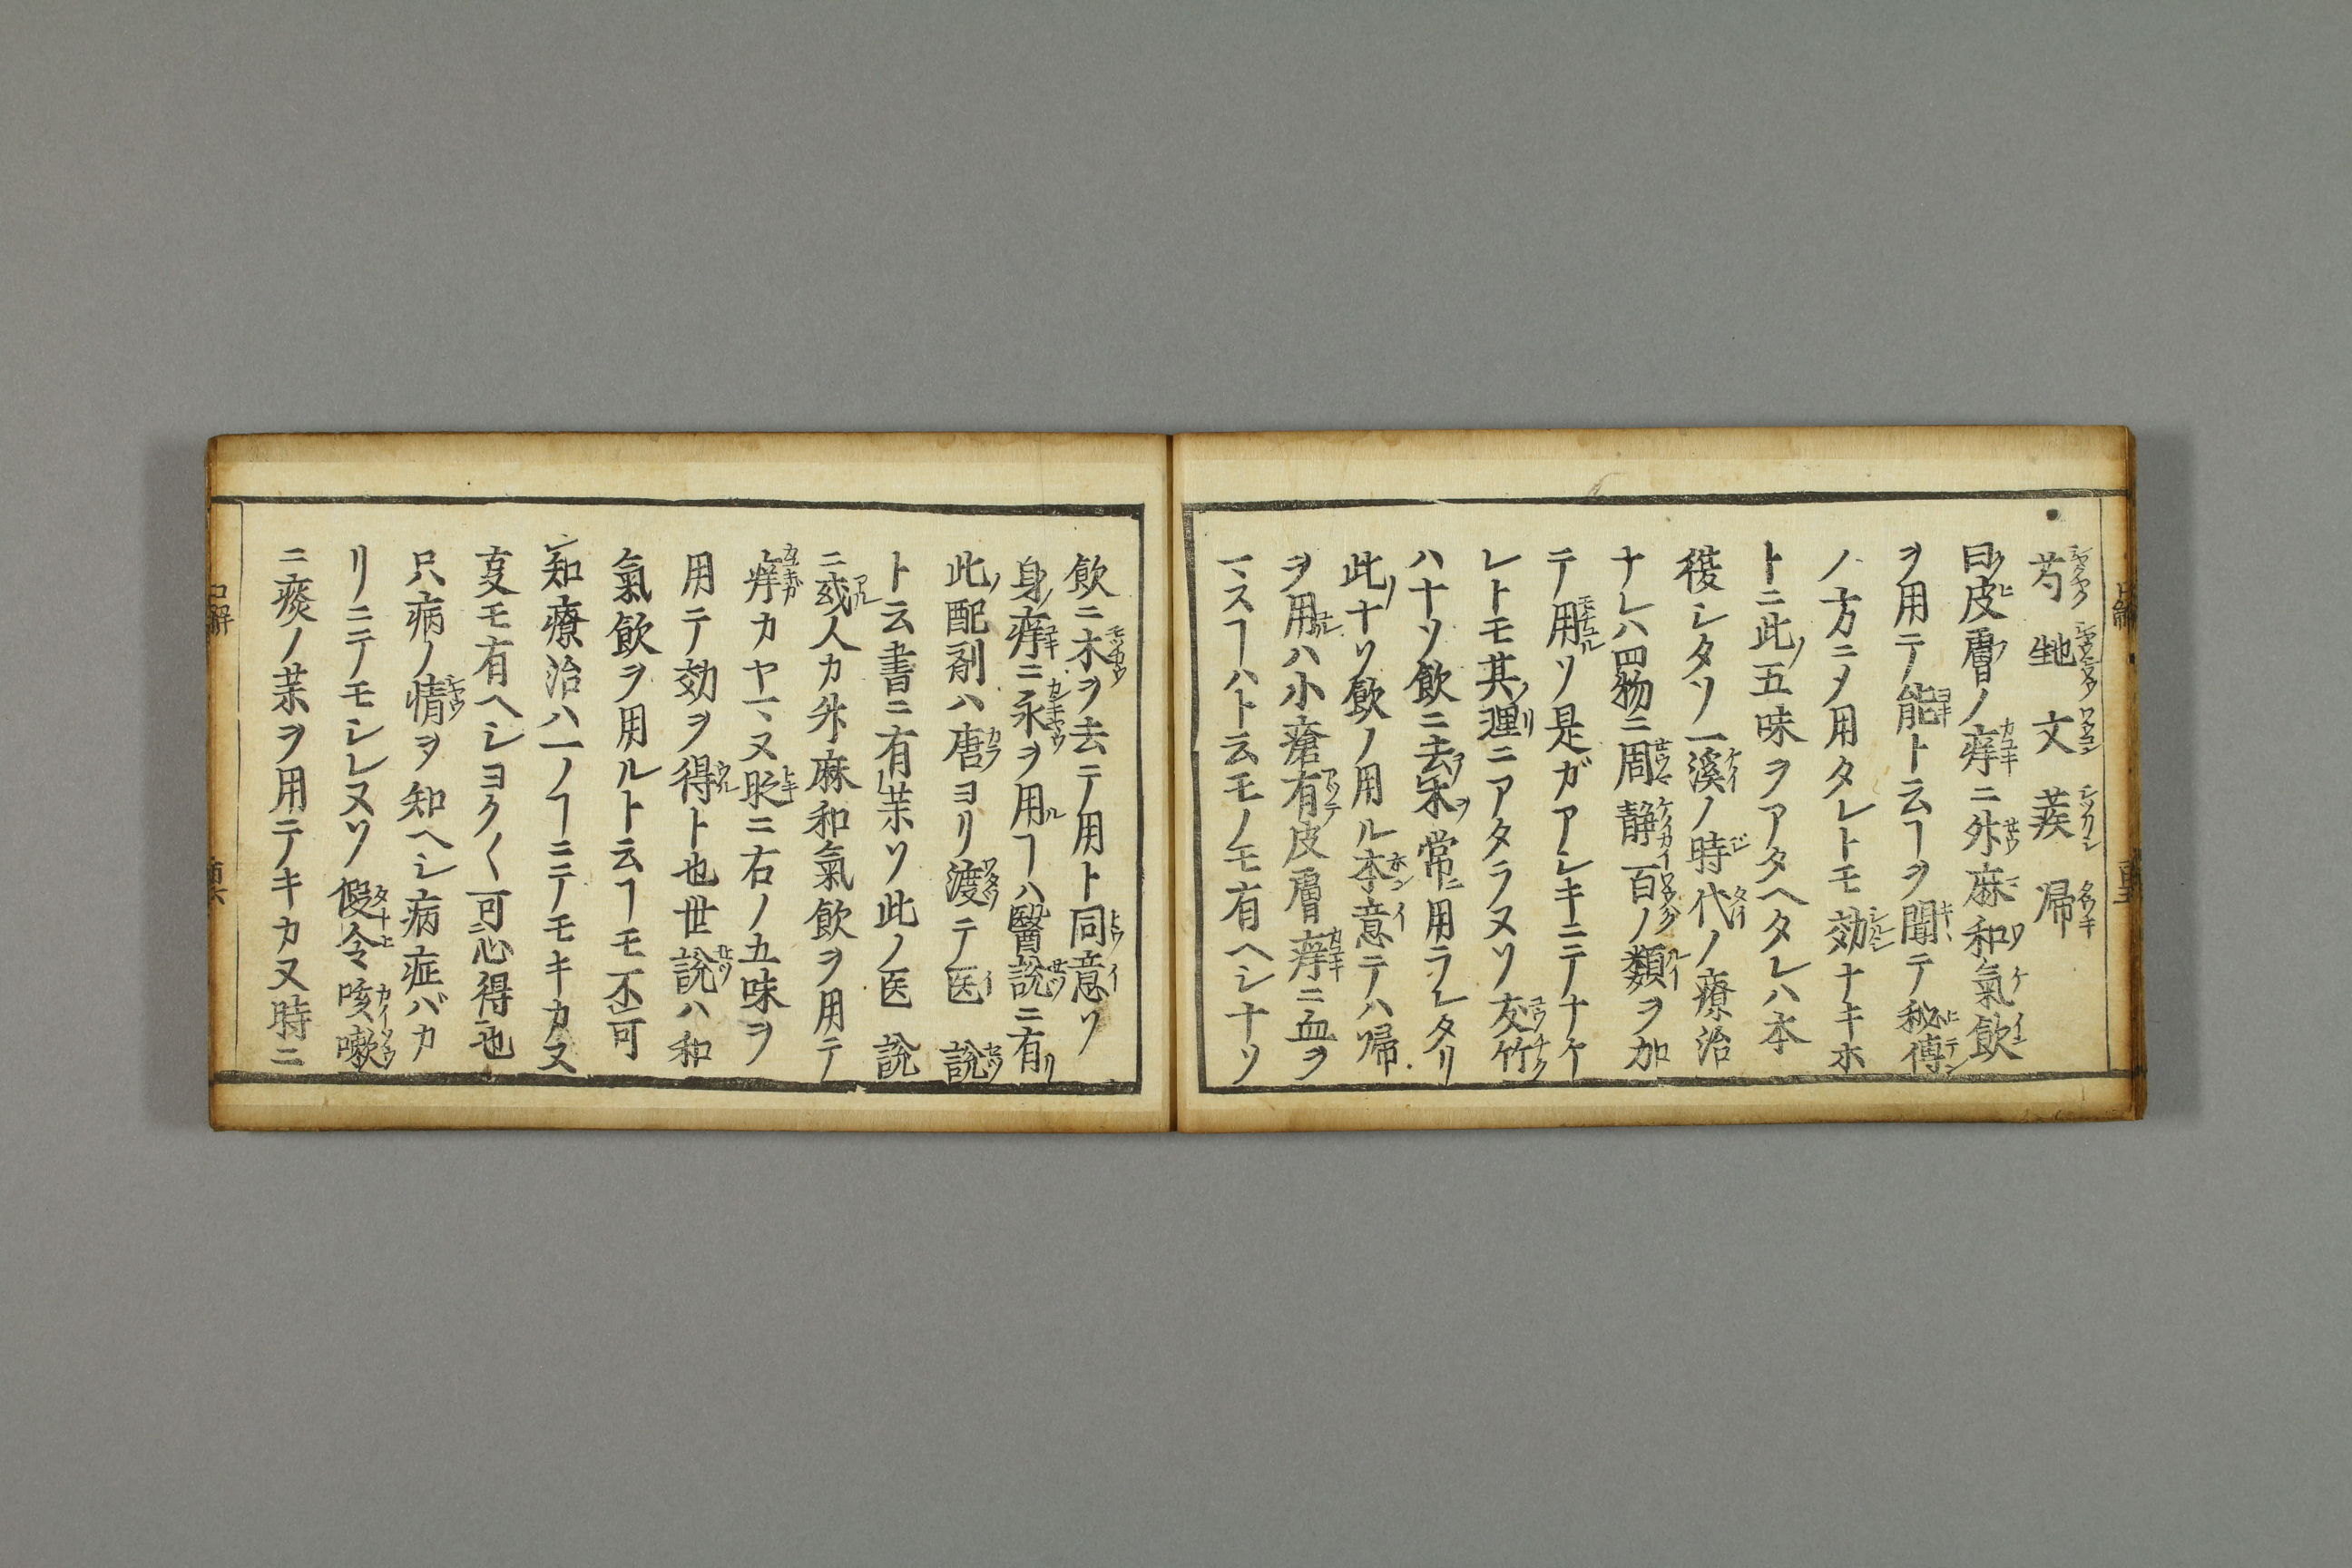 芍 地 文 蒺 帰
曰皮膚ノ痒ニ升麻和氣飲
ヲ用テ能ト云ヿヲ聞テ秘傳
ノ方ニメ用タレトモ効ナキホ
トニ此五味ヲアタヘタレハ本
復シタソ一溪ノ時代ノ療治
ナレハ四物ニ周静百ノ類ヲ加
テ用ソ是ガアレキニテナケ
レトモ其理ニアタラヌソ友竹
ハ十ソ飲ニ去朩常ニ用ラレタリ
此十ソ飲ノ用ル本意テハ帰
ヲ用ハ小瘡有皮膚痒ニ血ヲ
マスヿハト云モノモ有ヘシナソ
飲ニ木ヲ去テ用ト同意ソ
身痒ニ永ヲ用ヿハ醫説ニ有リ
此配剤ハ唐ヨリ渡テ医説
ト云書ニ有薬ソ此ノ医説
ニ或人カ升麻和氣飲ヲ用テ
痒カヤマヌ時ニ右ノ五味ヲ
用テ効ヲ得ト也世説ハ和
氣飲ヲ用ルト云ヿモ不可
知療治ハ一ノヿニテモキカヌ
叓モ有ヘシヨク〱可心得也
只病ノ情ヲ知ヘシ病症バカ
リニテモシレヌソ假令咳嗽
ニ痰ノ薬ヲ用テキカヌ時ニ